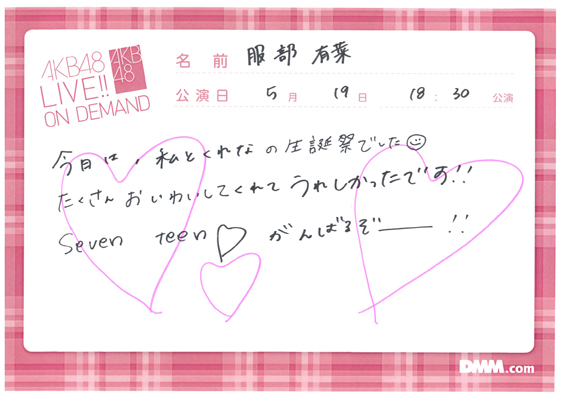 AKB48
LIVE!!
ON DEMAND
AKB
48
名前 服部有菜
公演日 5月 19日 18:30 公演
今日は、私とくれなの生誕祭でした☺
たくさんおいわいしてくれてうれしかったです!!
Seven teen♡ がんばるぞー!!
DMM.com